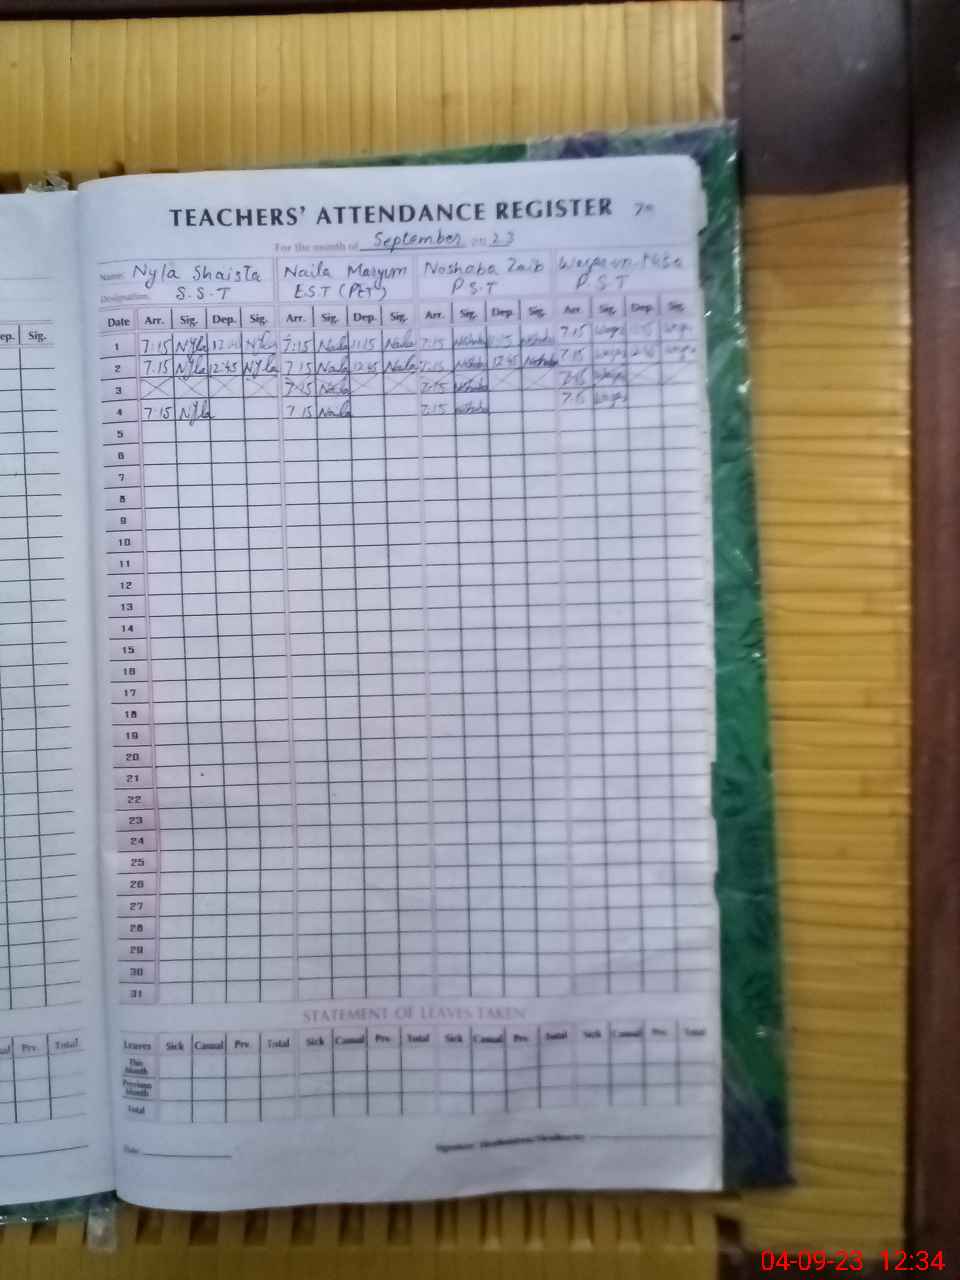 TEACHERS' ATTENDANCE REGISTER
For the month of September 2023
Name: Nyla Shaista Naila Maryum Noshaba Zaib
Designation: S.S.T E.S.T (PET) P.S.T P.S.T
ep. Sig. Date Arr. Sig. Dep. Sig. Arr. Sig. Dep. Sig. Arr. Sig. Dep. Sig. Arr. Sig. Dep. Sig.
1 7:15 Nyla Nyla 7:15 Naila 11:15 Naila 7:15 7:15
2 7.15 Nyla 12:45 Nyla 7 15 Naila 12:45 Naila 7:15 12:45 Noshaba 7.15
3 7 15 Naila 7:15 7:15
4 7.15 Nyla 7 15 Naila 7:15 7:15
5
6
7
8
9
10
11
12
13
14
15
16
17
18
19
20
21
22
23
24
25
26
27
28
29
30
31
STATEMENT OF LEAVES TAKEN
ual Prv. Total Leaves Sick Casual Prv. Total Sick Casual Prv. Total Sick Casual Prv. Total Sick Casual Prv. Total
This Month
Previous Month
Total
Date
04-09-23 12:34